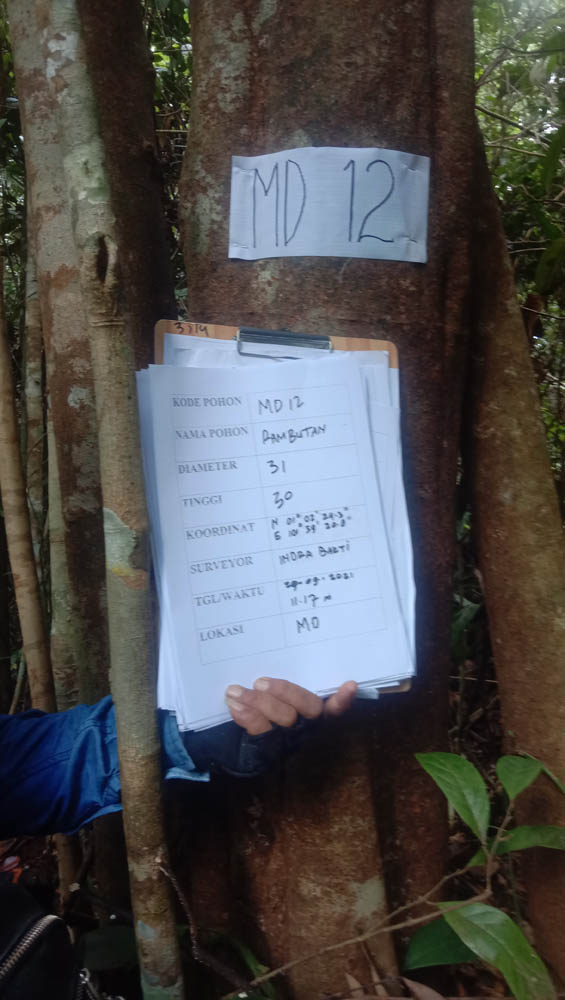 MD 12
3314
KODE POHON MD 12
NAMA POHON RAMBUTAN
DIAMETER 31
TINGGI 30
KOORDINAT N 01° 02' 24.3"
E 101° 59' 20.0"
SURVEYOR INDRA BAKTI
TGL/WAKTU 29-09-2021
11.17
LOKASI MD